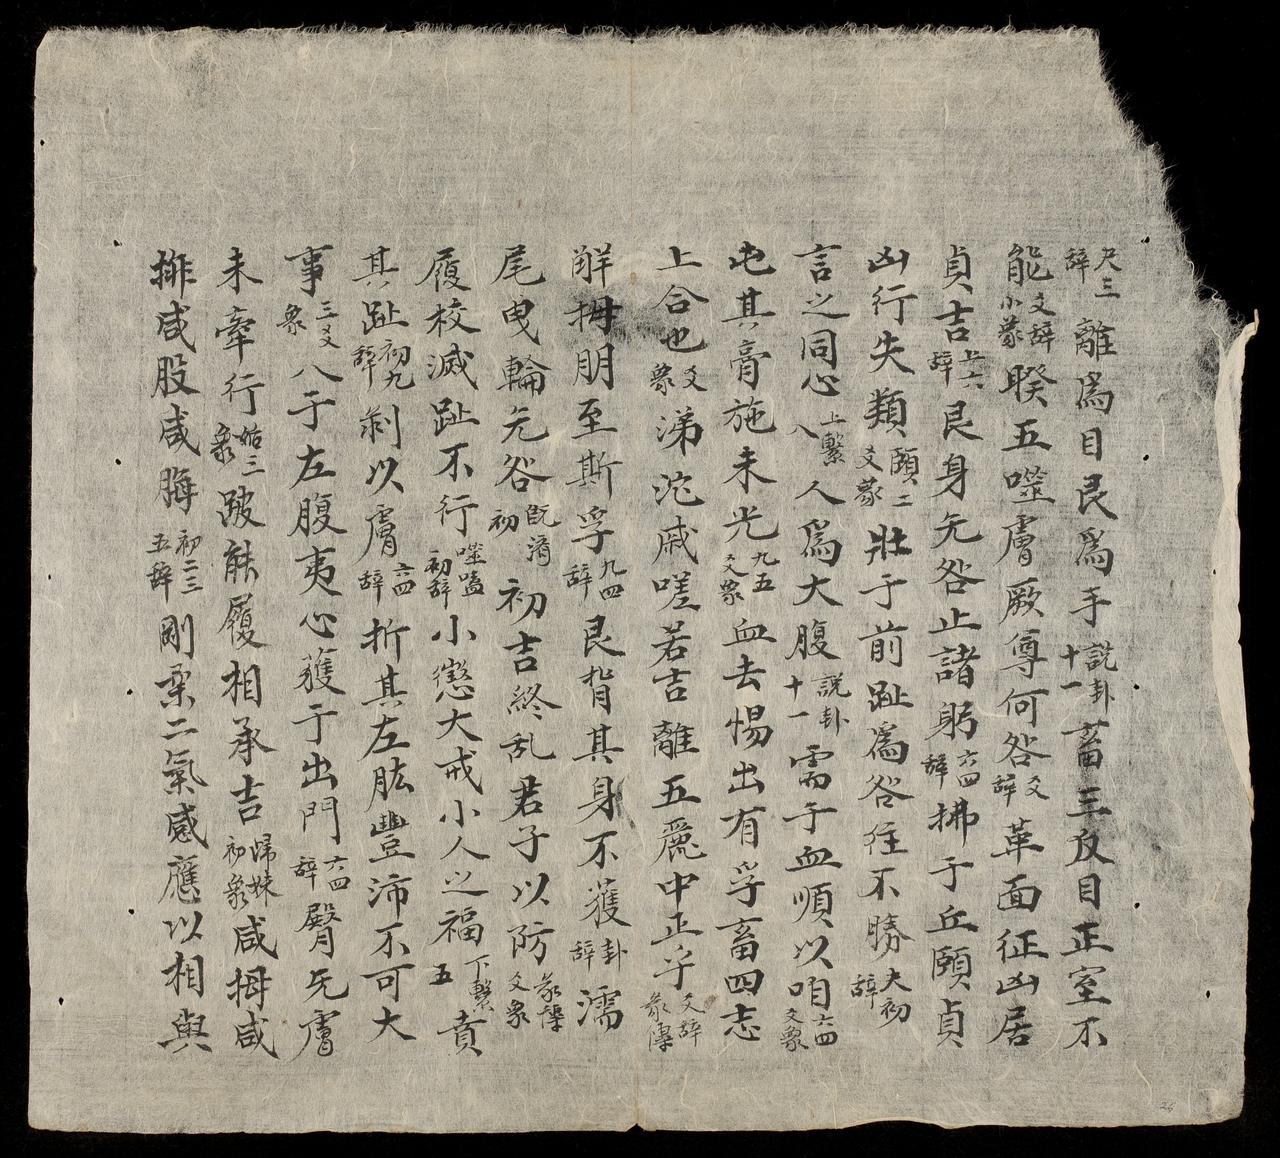 爻三辞離為目艮為手説卦十一畜三反目正室不
能爻辞小象暌五噬膚厥尊何咎爻辞革面征凶居
貞吉上六辞艮身无咎止諸躬六四辞拂于丘頤貞
凶行失類頤二爻象壯于前趾為咎往不勝大初辞
言之同心上繫八人為大腹説卦十一需于血順以咱六四爻象
屯其膏施未光九五爻象血去惕出有孚畜四志
上合也爻象涕沱戚嗟若吉離五麗中正乎爻辞彖傳
解拇朋至斯孚九四辞艮背其身不獲卦辞濡
尾曳輪无咎既濟初初吉終乱君子以防彖傳爻象
履校滅趾不行噬嗑初辞小懲大戒小人之福下繫五賁
其趾初九辞剥以膚六四辞折其左肱豐沛不可大
事三爻象入于左腹夷心獲于出門六四辞臀无膚
未牽行姤三象跛能履相承吉歸妹初象咸拇咸
排咸股咸脢初二三五辞剛柔二氣感應以相與